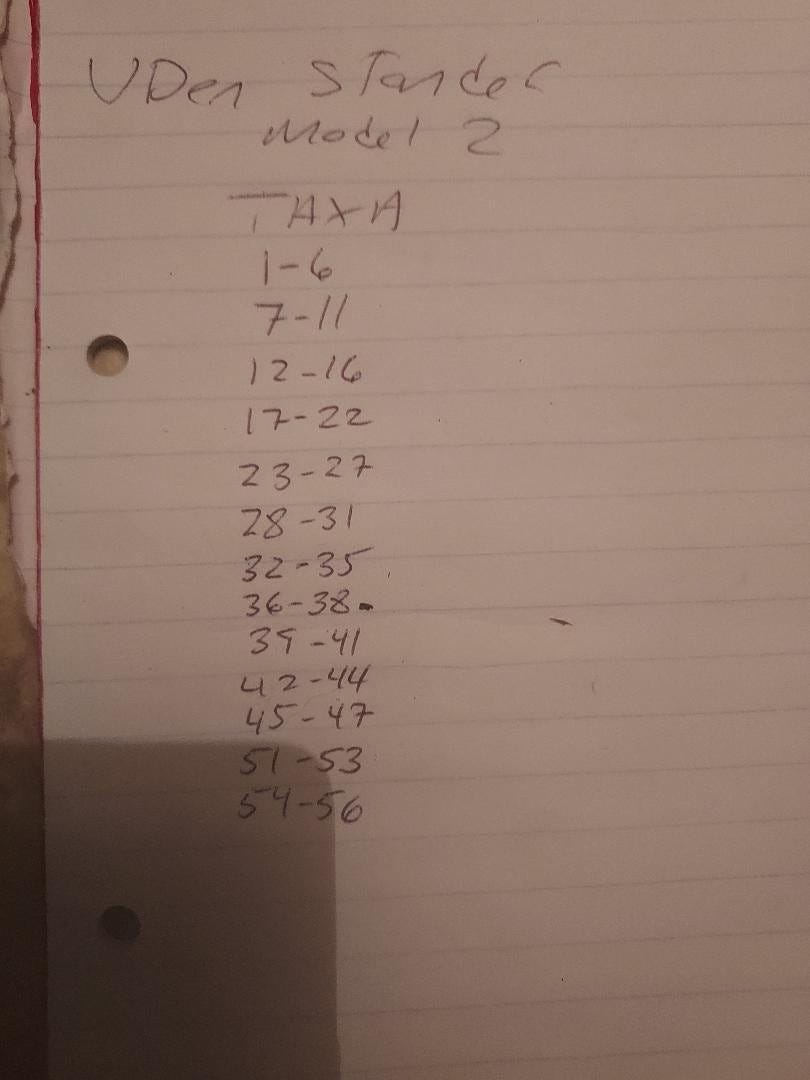 UDen STander
Model 2
TAXA
1-6
7-11
12-16
17-22
23-27
28-31
32-35
36-38
39-41
42-44
45-47
51-53
54-56